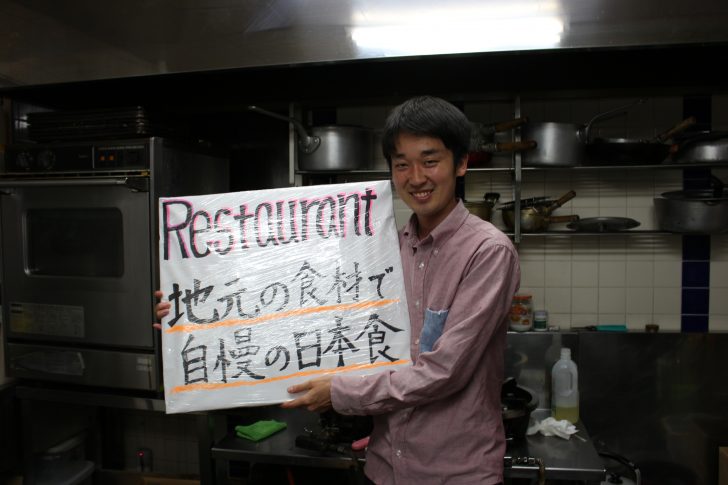 Restaurant
地元の食材で
自慢の日本食